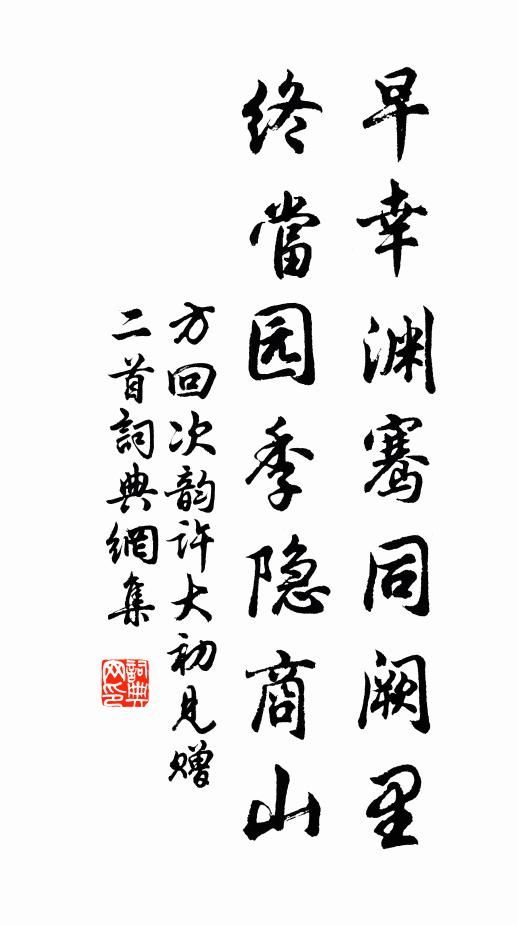 早幸渊骞同阙里
终當园季隐商山
方回次韵许大初见赠
二首詞典網集
詞典网印